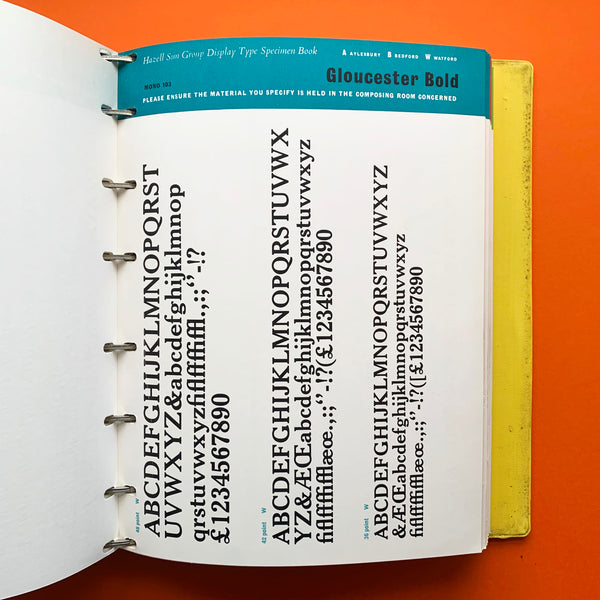 Hazell Sun Group Display Type Specimen Book
A AYLESBURY B BEDFORD W WATFORD
Gloucester Bold
MONO 103
PLEASE ENSURE THE MATERIAL YOU SPECIFY IS HELD IN THE COMPOSING ROOM CONCERNED
48 point W
ABCDEFGHIJKLMNOPQRST
UVWXYZ&abcdefghijklmnop
qrstuvwxyzfiflffffiffl.,:;‘’-!?
£1234567890
42 point W
ABCDEFGHIJKLMNOPQRSTUVWX
YZ&ÆŒabcdefghijklmnopqrstuvwxyz
fiflffffifflæœ.,:;‘’-!?(£1234567890
36 point W
ABCDEFGHIJKLMNOPQRSTUVWXYZ
&ÆŒabcdefghijklmnopqrstuvwxyz
fiflffffifflæœ.,:;‘’-!?([£1234567890